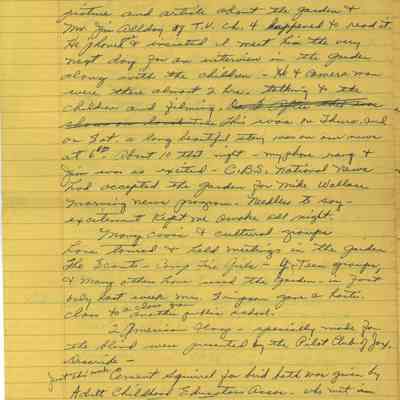 picture and article about the garden &
Mr. Jim Allday of T.V. Ch. 4 happened to read it.
He phoned & insisted I meet him the very
next day for an interview in the garden
along with the children - He & Camera man
were there almost 2 hrs. talking to the
children and filming.
this was on Thurs. and
on Sat. a long beautiful story was on our news
at 6:00. About 10 that night - my phone rang &
Jim was so excited - C.B.S. National News
had accepted the garden for Mike Wallace
morning news program. Needless to say -
excitement kept me awake all night.
Many civic & cultural groups
have toured & held meetings in the garden
The Scouts - Camp Fire Girls - Y-Teen groups,
& many others have used the garden - in fact
only last week Mrs. Simpson gave a
class to a class from another public school.
2 American Flags - specially made for
the blind were presented by the Pilot Club of Jax.
describe -
just this week Cement squirrel for bird bath was given by
Adult Childhood Education Assoc. - who met in